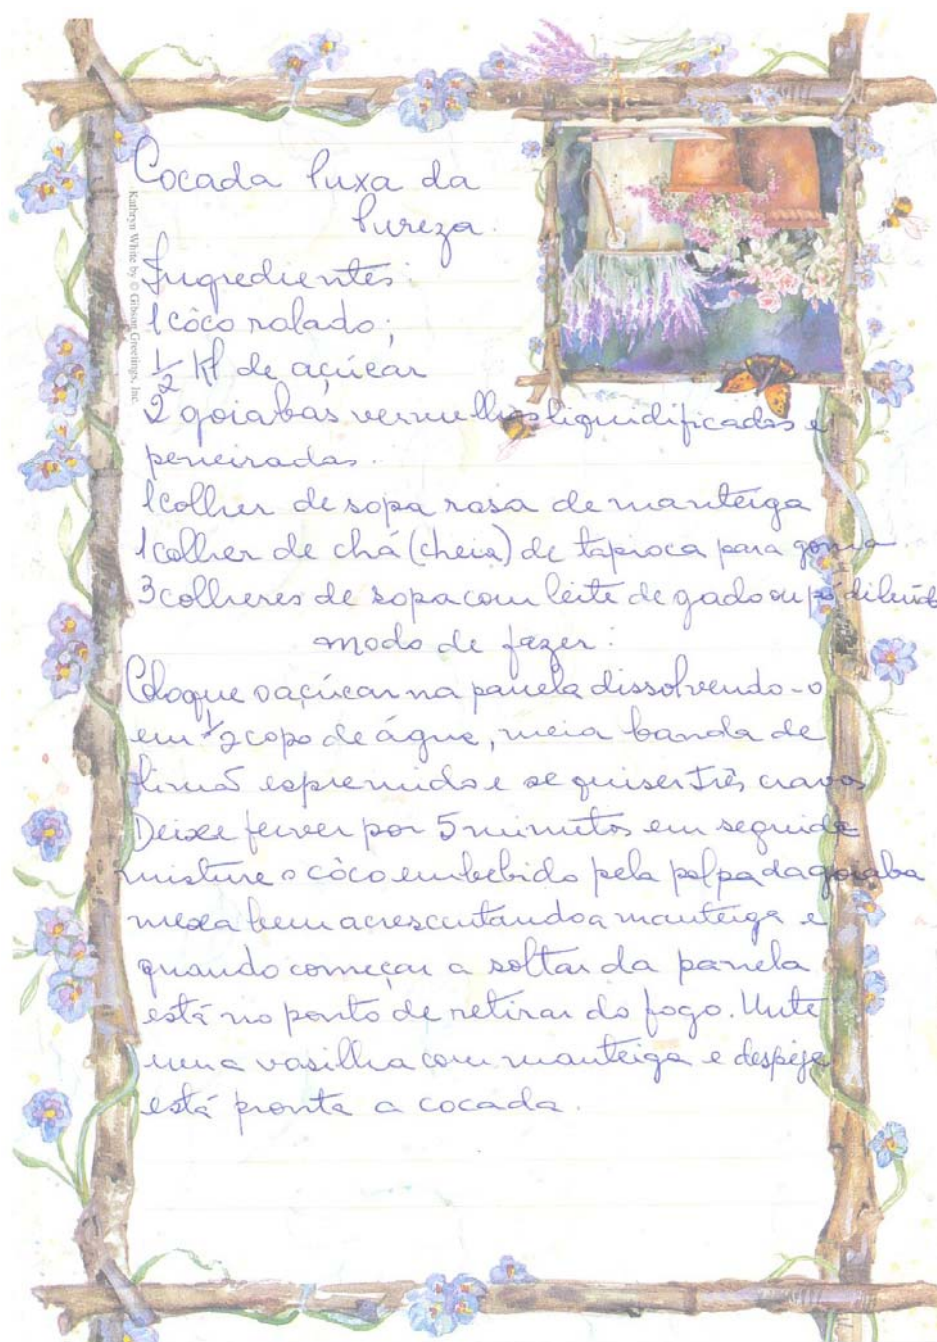 Cocada Puxa da
Pureza.
Ingredientes:
1 côco ralado;
½ Kl de açúcar
2 goiabas vermelhas liquidificadas e
peneiradas.
1 colher de sopa rasa de manteiga
1 colher de chá (cheia) de tapioca para goma
3 colheres de sopa com leite de gado ou pó diluido
modo de fazer:
Coloque o açúcar na panela dissolvendo-o
em ½ copo de água, meia banda de
limão espremido e se quiser três cravos
Deixe ferver por 5 minutos em seguida
misture o côco embebido pela polpa da goiaba
mexa bem acrescentando a manteiga e
quando começar a soltar da panela
está no ponto de retirar do fogo. Unte
uma vasilha com manteiga e despeje
está pronta a cocada.
Kathryn White by © Gibson Greetings, Inc.